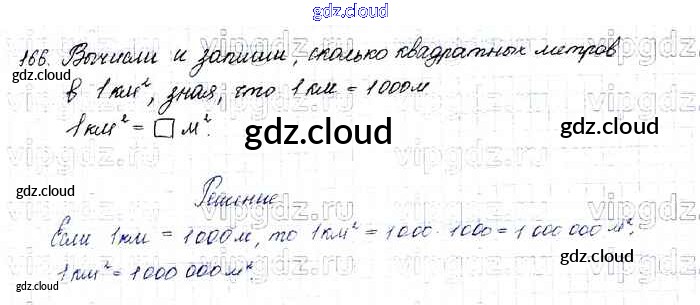 gdz.cloud
166. Вычисли и запиши, сколько квадратных метров
в 1 км², зная, что 1 км = 1000 м
1 км² = □ м².
gdz.cloud
gdz.cloud
gdz.cloud
gdz.cloud
gdz.cloud
Решение
Если 1 км = 1000 м, то 1 км² = 1000 · 1000 = 1 000 000 м².
1 км² = 1 000 000 м².
gdz.cloud
gdz.cloud